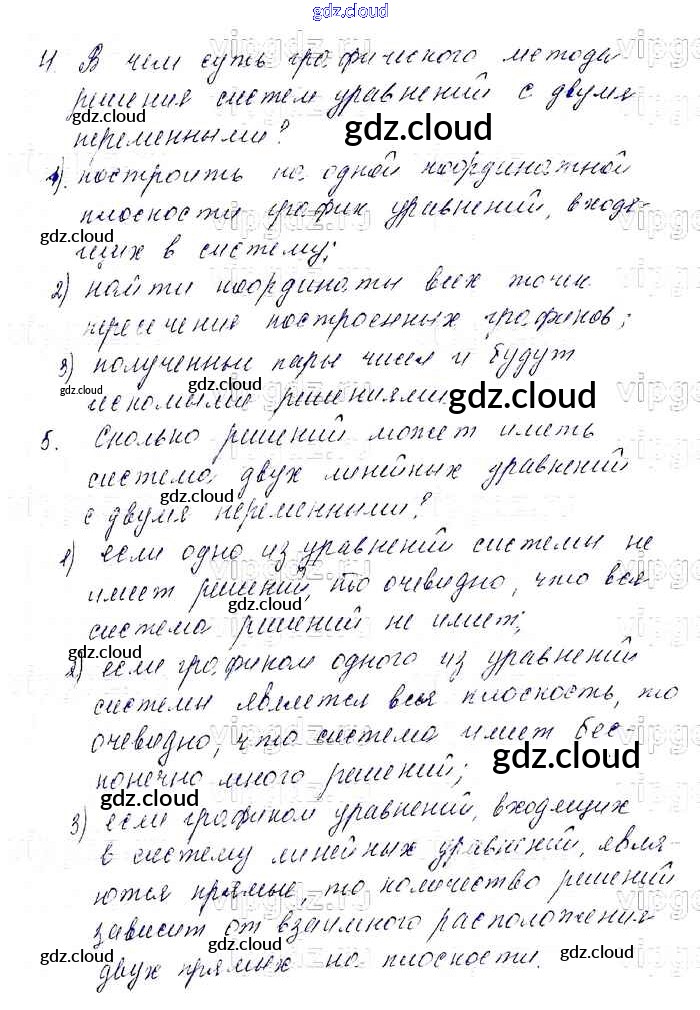 gdz.cloud
4. В чем суть графического метода
решения систем уравнений с двумя
gdz.cloud
переменными?
gdz.cloud
1) построить на одной координатной
плоскости график уравнений, входя-
gdz.cloud
щих в систему;
2) найти координаты всех точек
пересечения построенных графиков;
3) полученные пары чисел и будут
gdz.cloud
gdz.cloud
искомыми решениями.
gdz.cloud
5. Сколько решений может иметь
система двух линейных уравнений
gdz.cloud
с двумя переменными?
1) если одно из уравнений системы не
имеет решений, то очевидно, что вся
gdz.cloud
система решений не имеет;
gdz.cloud
2) если графиком одного из уравнений
системы является вся плоскость, то
очевидно, что система имеет бес-
gdz.cloud
конечно много решений;
gdz.cloud
3) если графиком уравнений, входящих
в систему линейных уравнений, явля-
ются прямые, то количество решений
зависит от взаимного расположения
gdz.cloud
gdz.cloud
gdz.cloud
двух прямых на плоскости.